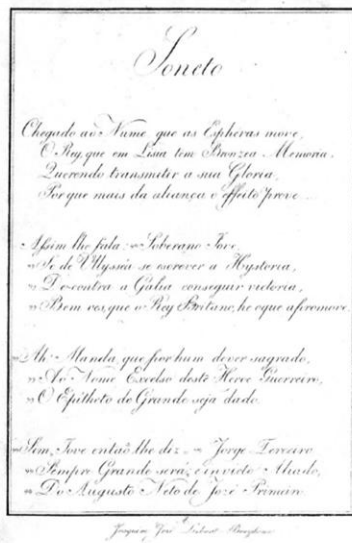 Soneto
Chegado ao Nume que as Espheras move,
O Rey, que em Lisia tem Bronzea Memoria.
Querendo transmetir a sua Gloria,
Porque mais da aliança o effeito prove.
Assim lhe fala: Soberano Jove,
" Se de Ulysséa se escrever a Hystoria,
" Do contra a Galia conseguir victoria,
" Bem vês, que o Rey Britano, he o que a promove.
" Ah! Manda, que por hum dever sagrado,
" Ao Nome Excelso deste Heroe Guerreiro,
" O Epitheto de Grande seja dado.
" Sem, Jove então lhe diz " Jorge Terceiro
" Sempre Grande será, e invicto Aliado,
" Do Augusto Neto de Jozé Primeiro.
Joaquim José